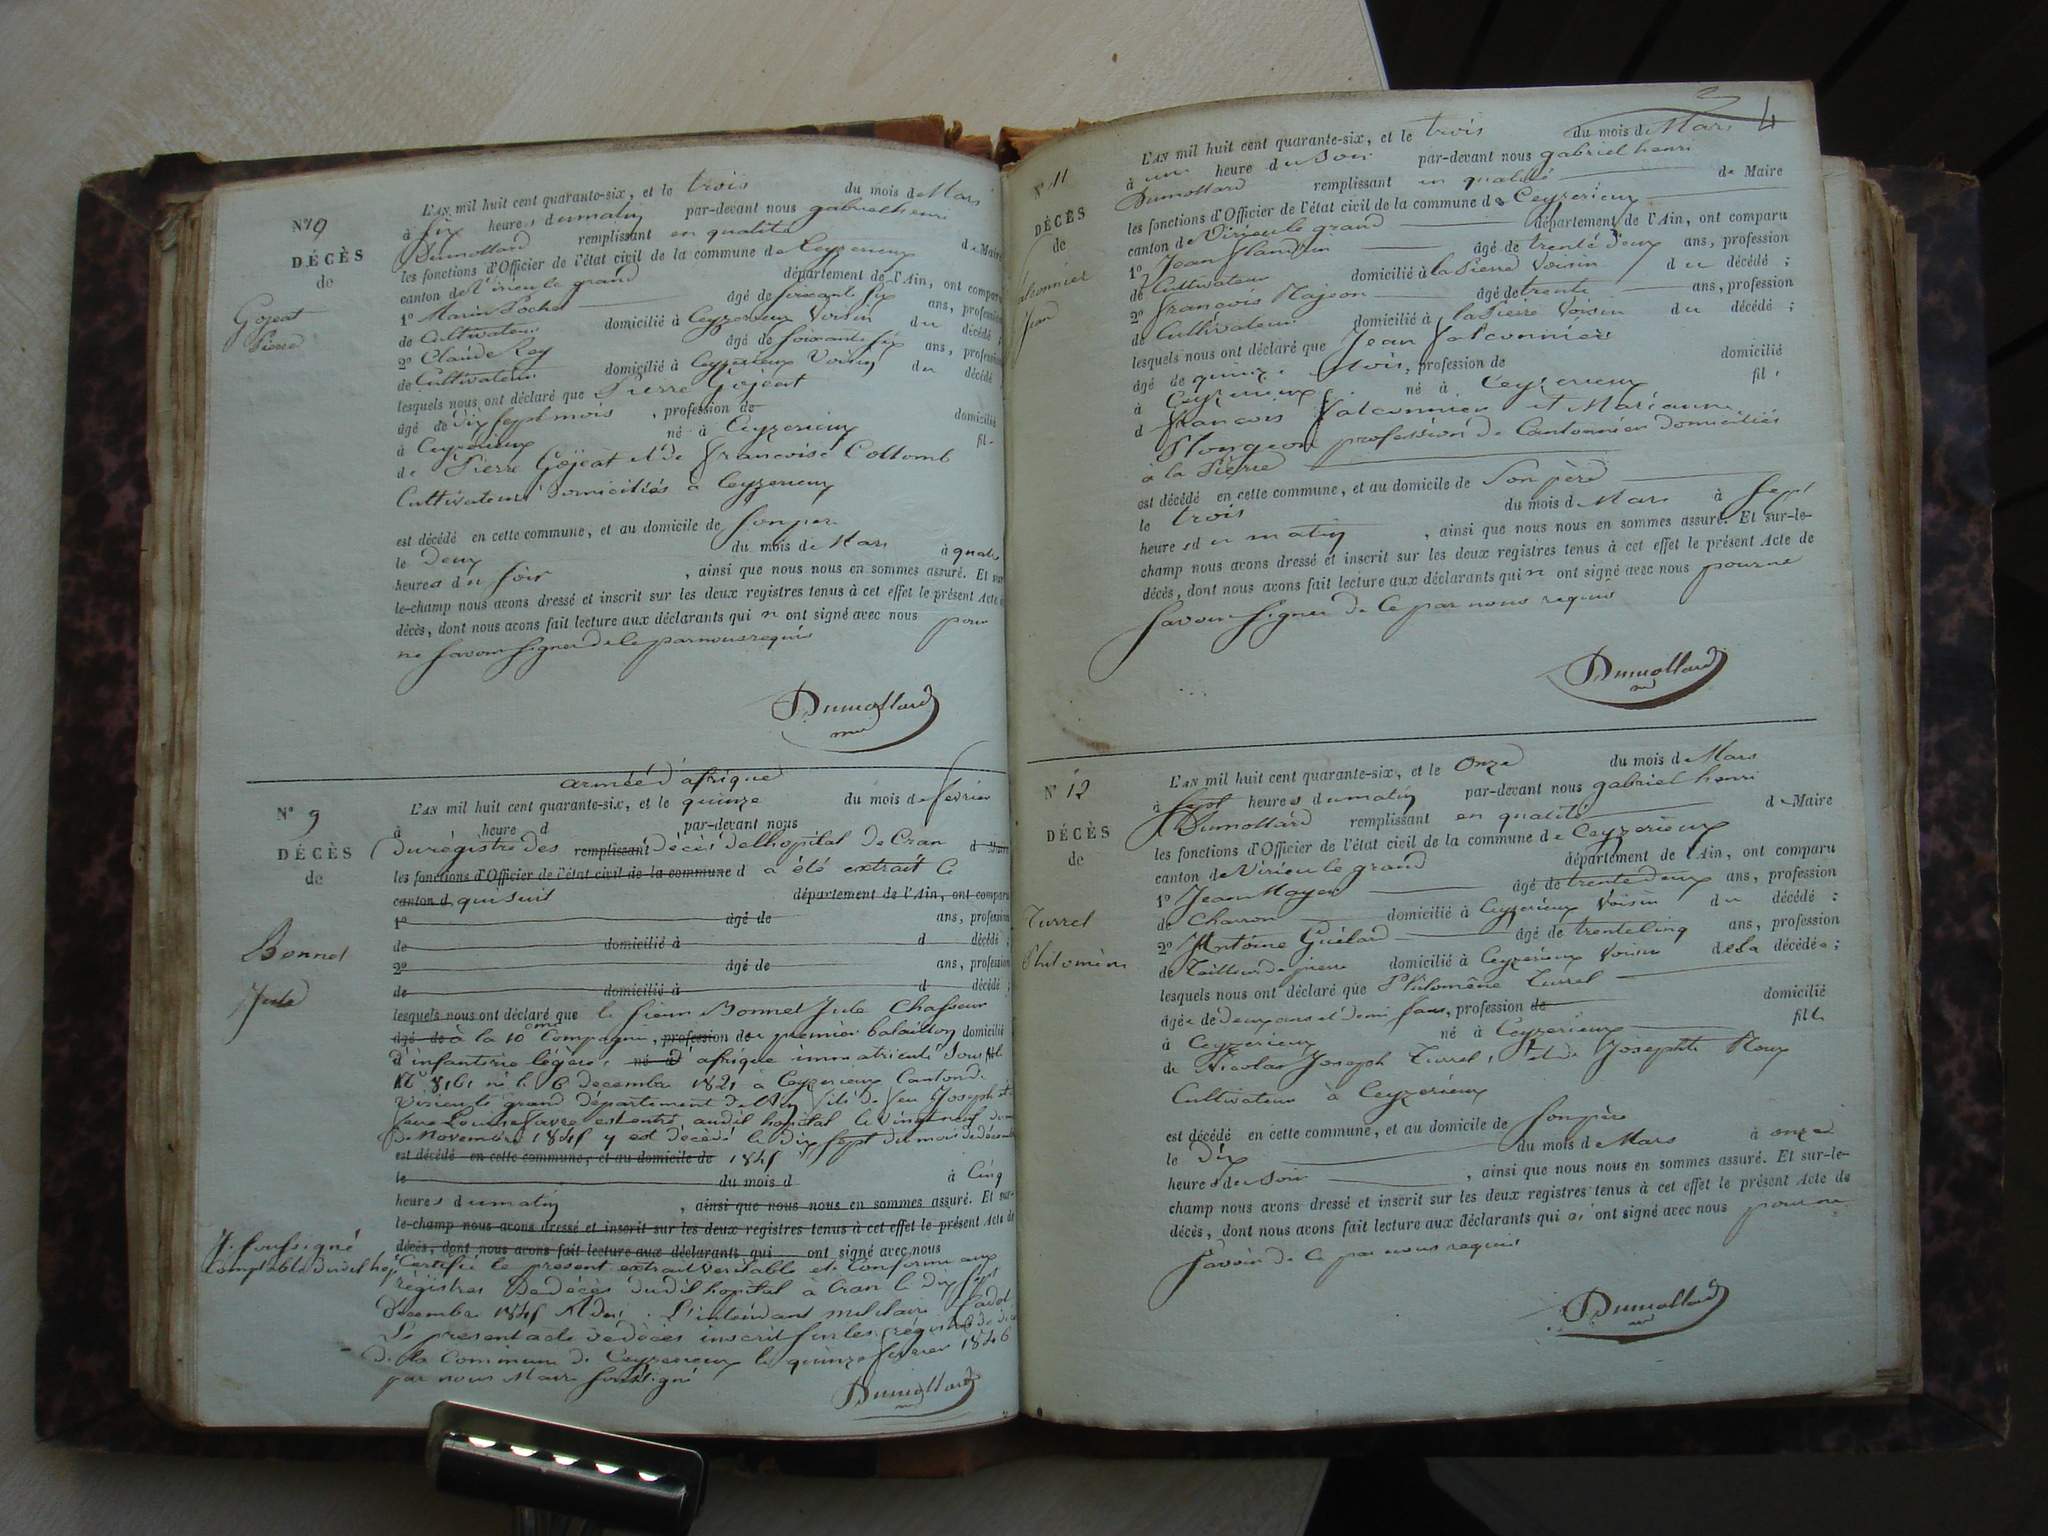 L'AN mil huit cent quarante-six, et le trois du mois de Mars
N° 10
à six heures du matin par-devant nous gabriel henri
Dumollard remplissant en qualité de Maire
DÉCÈS
les fonctions d'Officier de l'état civil de la commune de Ceyzerieux
de
canton de Virieu le grand département de l'Ain, ont comparu
Gojeat
1° Marin âgé de soixante six ans, profession
Pierre
de Cultivateur domicilié à Ceyzerieux Voisin du décédé ;
2° Claude Rey âgé de soixante six ans, profession
de Cultivateur domicilié à Ceyzerieux Voisin du décédé
lesquels nous ont déclaré que Pierre Gojeat
âgé de dix sept mois , profession de domicilié
à Ceyzerieux né à Ceyzerieux fil
de Pierre Gojeat et de Francoise Collomb
Cultivateurs domiciliés a Ceyzerieux
est décédé en cette commune, et au domicile de son pere
le deux du mois de Mars à quatre
heures du soir , ainsi que nous nous en sommes assuré. Et sur
le-champ nous avons dressé et inscrit sur les deux registres tenus à cet effet le présent Acte de
décès, dont nous avons fait lecture aux déclarants qui n ont signé avec nous pour
ne savoir signer de ce par nous requis
Dumollard
armée d'afrique
N° 9
L'AN mil huit cent quarante-six, et le quinze du mois de février
à heure d par-devant nous
DÉCÈS
du régistre des remplissant décès de lhopital de Cran d Maire
de
les fonctions d'Officier de l'état civil de la commune d a été extrait ce
canton d qui suit département de l'Ain, ont comparu
1° âgé de ans, profession
Bonnet
de domicilié à d décédé ;
2° âgé de ans, profession
Jule
de domicilié à d décédé ;
lesquels nous ont déclaré que le sieur Bonnet Jule Chasseur
âgé de à la 10eme Compagnie, profession du premier bataillon domicilié
d'infanterie légère, né à d'afrique immatriculé sous fil le
N° 8161 né le 6 decembre 1821 à Ceyzerieux Canton de
Virieu le grand département de l'Ain fils de feu Joseph et
est entré audit hopital le Vingt neuf du mois
de Novembre 1845 y est décédé le dix sept du mois de décembre
est décédé en cette commune, et au domicile de 1845
le du mois d à Cinq
heures du matin , ainsi que nous nous en sommes assuré. Et sur-
le-champ nous avons dressé et inscrit sur les deux registres tenus à cet effet le présent Acte de
J. soussigné
décès, dont nous avons fait lecture aux déclarants qui ont signé avec nous
Comptable dudit hop
Certifie le present extrait veritable et Conforme aux
régistres de décès dudit hopital à Cran le dix sept
decembre 1845 L'intendant militaire
Le present acte de décès inscrit sur les régistres de décès
de la Commune de Ceyzerieux le quinze fevrier 1846
par nous Maire soussigné
Dumollard
4
L'AN mil huit cent quarante-six, et le trois du mois de Mars
N° 11
à une heure du Soir par-devant nous gabriel henri
Dumollard remplissant en qualité de Maire
DÉCÈS
les fonctions d'Officier de l'état civil de la commune de Ceyzerieux
de
canton de Virieu le grand département de l'Ain, ont comparu
1° Jean Flandrin âgé de trente deux ans, profession
de Cultivateur domicilié à la Pierre Voisin du décédé ;
2° francois âgé de trente ans, profession
Jean
de Cultivateur domicilié à la Pierre Voisin du décédé ;
lesquels nous ont déclaré que Jean Falconnier
âgé de quinze Mois, profession de domicilié
à Ceyzerieux né à Ceyzerieux fil
d francois Falconnier et Marianne
Plongeon profession de Cantonnier domiciliés
à la Pierre
est décédé en cette commune, et au domicile de Son père
le trois du mois de Mars à sept
heures du matin , ainsi que nous nous en sommes assuré. Et sur-le-
champ nous avons dressé et inscrit sur les deux registres tenus à cet effet le présent Acte de
décès, dont nous avons fait lecture aux déclarants qui n ont signé avec nous pour ne
savoir signer de Ce par nous requis
Dumollard
L'AN mil huit cent quarante-six, et le Onze du mois de Mars
N° 12
à Sept heures du matin par-devant nous gabriel henri
Dumollard remplissant en qualité de Maire
DÉCÈS
les fonctions d'Officier de l'état civil de la commune de Ceyzerieux
de
canton de Virieu le grand département de l'Ain, ont comparu
1° Jean Moyen âgé de trente deux ans, profession
Turrel
de Charron domicilié à Ceyzerieux Voisin du décédé ;
2° Antoine Guélard âgé de trente Cinq ans, profession
Philomène
de Tailleur de pierre domicilié à Ceyzerieux Voisin de la décédée ;
lesquels nous ont déclaré que Philomène Turrel
âgée de deux ans et demi ans, profession de domicilié
à Ceyzerieux né à Ceyzerieux fille
de Nicolas Joseph Turrel, et de Josephte Roux
Cultivateur à Ceyzerieux
est décédé en cette commune, et au domicile de son père
le dix du mois de Mars à onze
heures du Soir , ainsi que nous nous en sommes assuré. Et sur-le-
champ nous avons dressé et inscrit sur les deux registres tenus à cet effet le présent Acte de
décès, dont nous avons fait lecture aux déclarants qui ont signé avec nous pour ne
savoir de Ce par nous requis
Dumollard